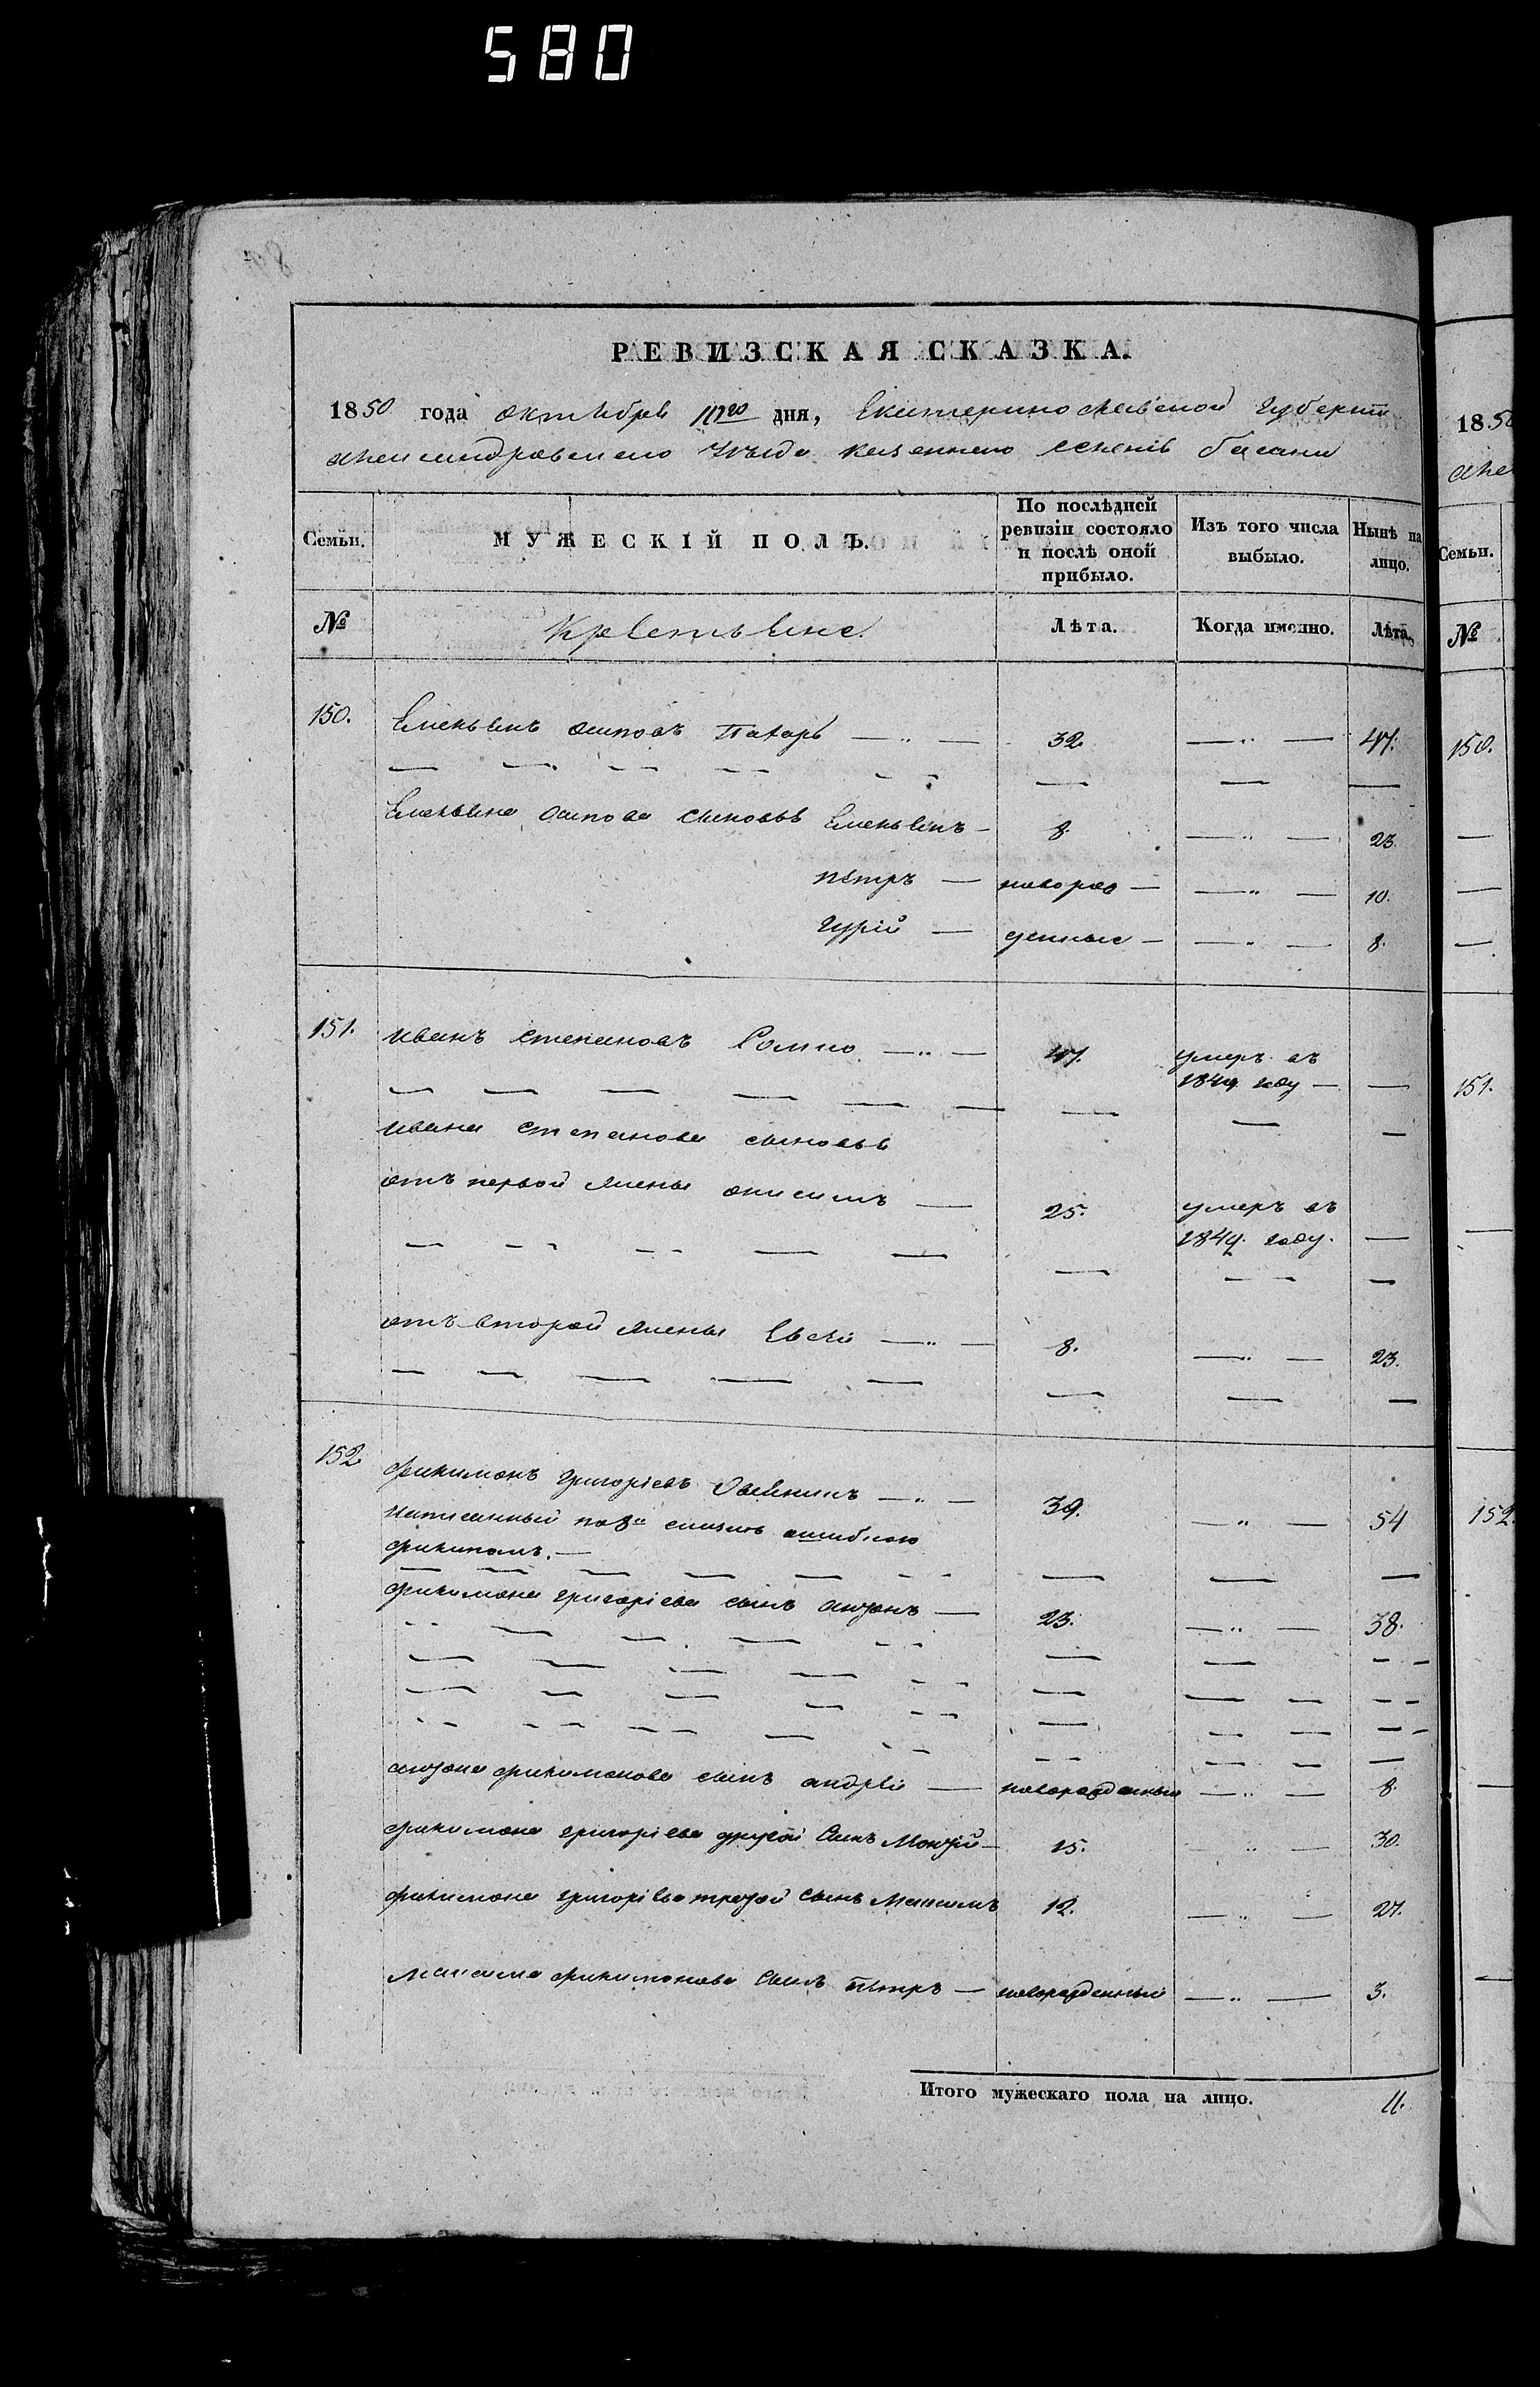 580
РЕВИЗСКАЯ СКАЗКА.
1850 года октября дня, Екатеринославской Губерніи
Александровскаго уѣзда казеннаго селенія басани
Семьи. МУЖЕСКІЙ ПОЛЪ. По послѣдней ревизіи состояло и послѣ оной прибыло. Изъ того числа выбыло. Нынѣ на лицо.
№ Крестьяне. Лѣта. Когда именно. Лѣта.
150. Емельянъ осиповъ 32. — „ — 47.
Емельяна осипова сыновья Емельянъ — 8. — „ — 23.
петръ — новорож — — „ — 10.
гурій — денные — — „ — 8.
151. иванъ степановъ — „ — 47. умеръ въ
1849. году — —
ивана степанова сыновья
отъ первой жены онисимъ — 25. умеръ въ
1849. году. —
отъ второй жены Евсѣй — „ — 8. — „ — 23.
152. филимонъ григорьевъ — „ — 39. — „ — 54
написанный по 8й сказкѣ ошибкою
филипомъ. —
филимона григорьева сынъ антонъ — 23. — „ — 38.
антона филимонова сынъ андрѣй — новорожденный — „ — 8.
филимона григорьева другой сынъ — 15. „ 30.
филимона григорьева третій сынъ Максимъ 12. — „ — 27.
максима филимонова сынъ петръ — новорожденный — „ — 3.
Итого мужескаго пола на лицо. 11.
1850
Але
Семьи.
№
150.
151.
152.